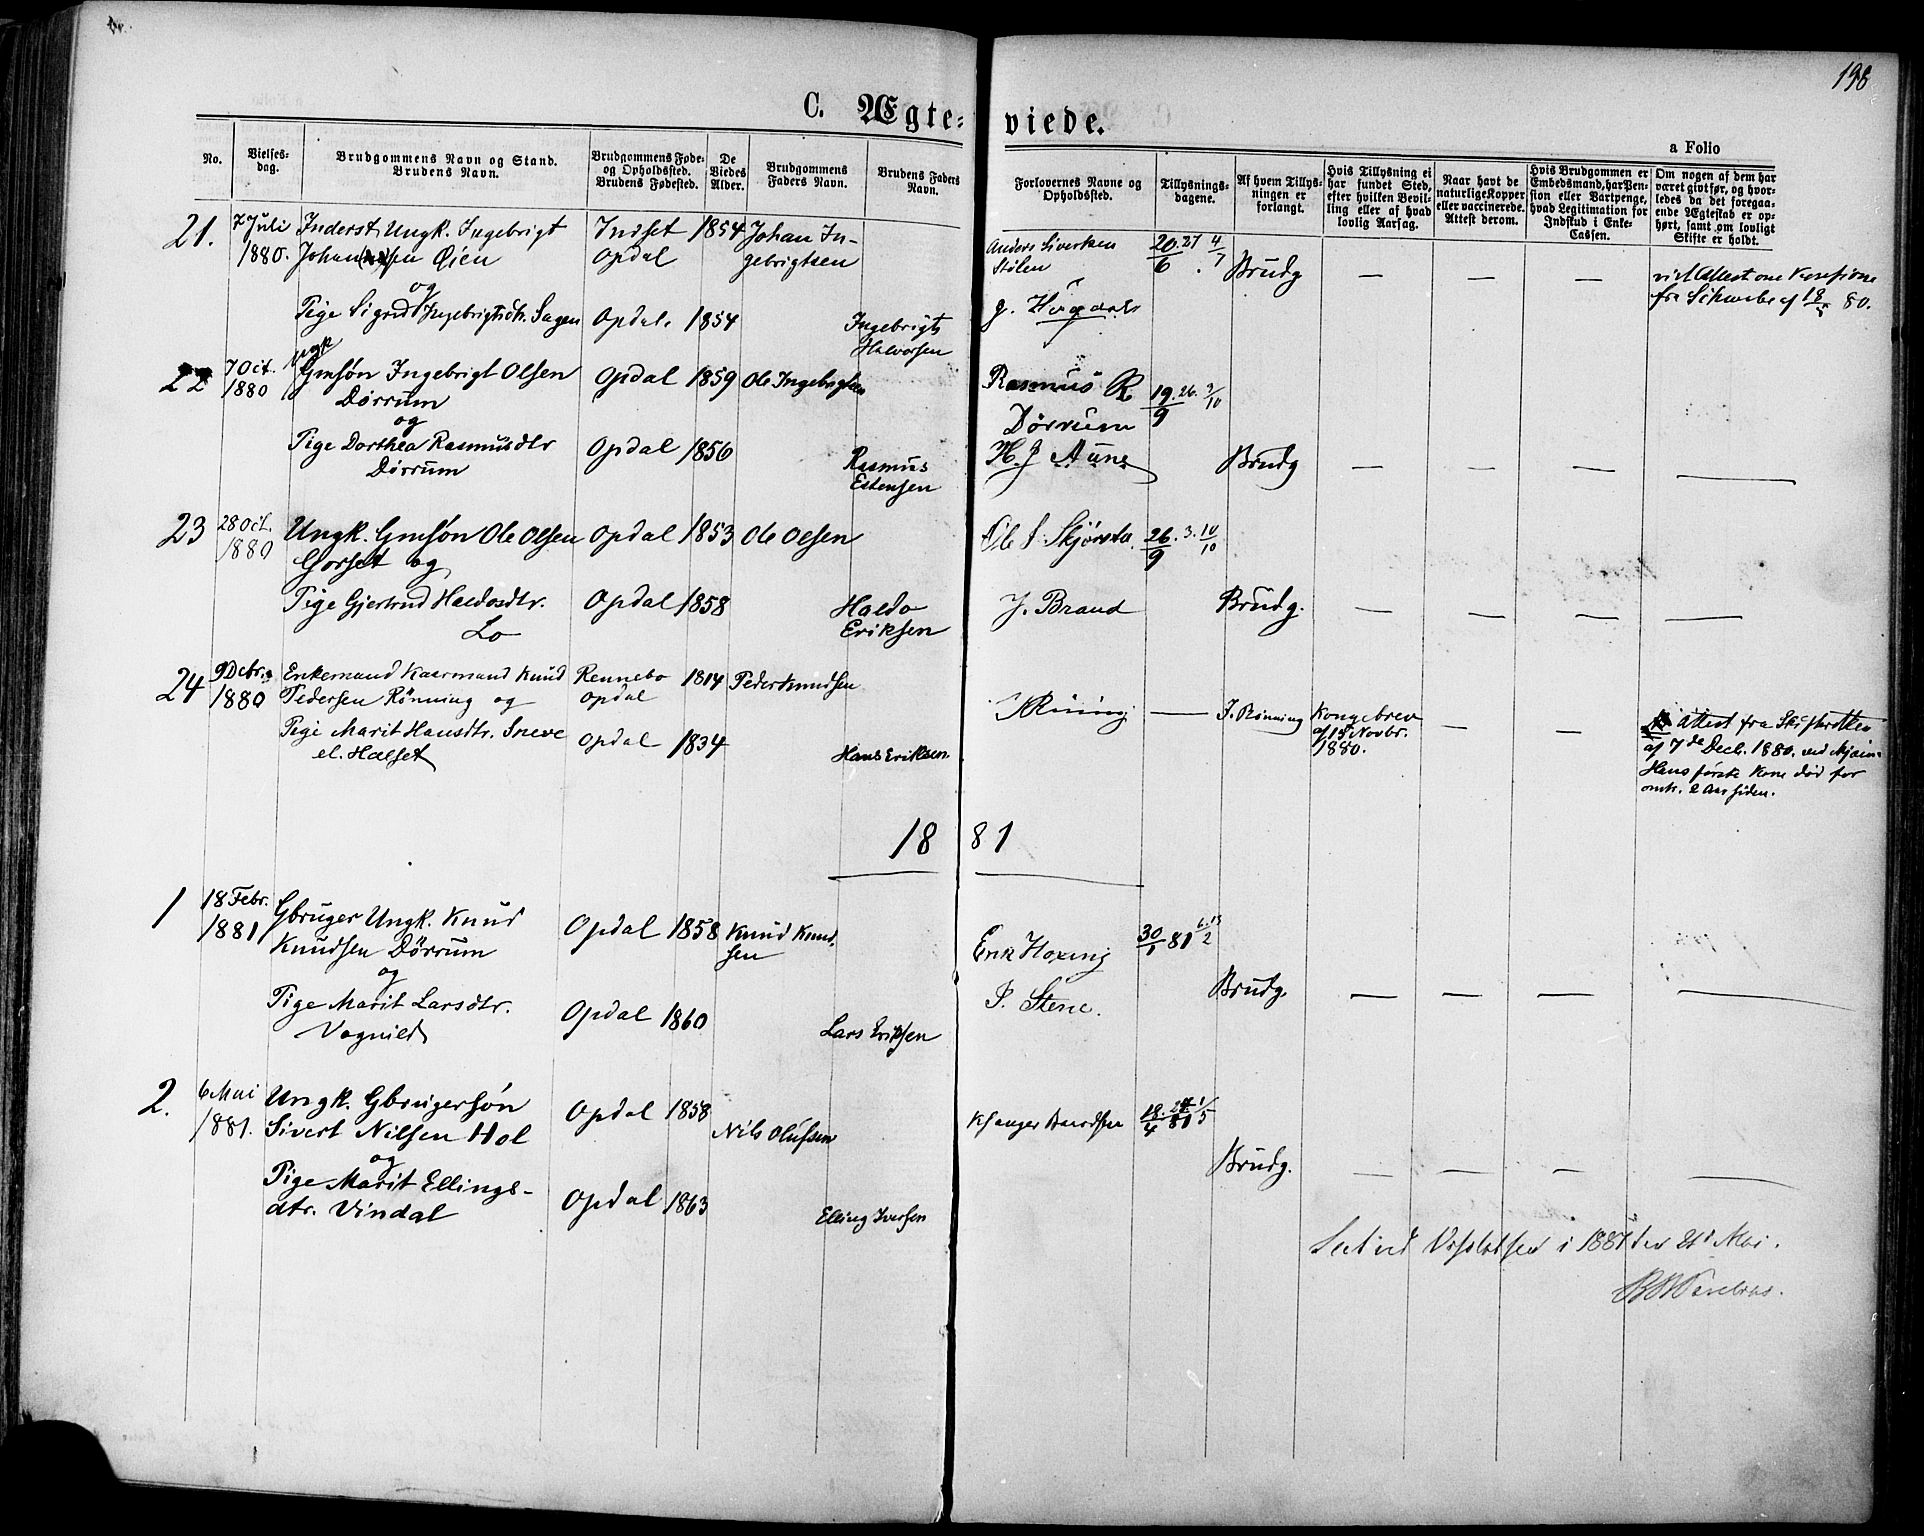 198
C. Ægte- viede.
a Folio
No.
Vielses-
dag.
Brudgommens Navn og Stand.
Brudens Navn.
Brudgommens Føde-
og Opholdssted.
Brudens Fødested.
De
Viedes
Alder.
Brudgommens
Faders Navn.
Brudens Faders
Navn.
Forlovernes Navne og
Opholdssted.
Tillysnings-
dagene.
Af hvem Tillys-
ningen er
forlangt.
Hvis Tillysning ei
har fundet Sted,
efter hvilken Bevil-
ling eller af hvad
lovlig Aarsag.
Naar havt de
naturlige Kopper
eller vaccinerede.
Attest derom.
Hvis Brudgommen er
Embedsmand, har Pen-
sion eller Vartpenge,
hvad Legitimation for
Indskud i Enke-
Cassen.
Om nogen af dem har
været givt før, og hvor-
ledes da det foregaa-
ende Ægteskab er op-
hørt, samt om lovligt
Skifte er holdt.
21. 7 Juli Inderst Ungk. Ingebrigt Indset 1854 Johan In-
1880. Johan sen Øien Opdal gebrigtsen
Anders Siversen 20. 27 4
Stølen 6 7 Brudg — — —
og
Pige Sigrid Ingebrigtsdtr. Sagen Opdal. 1854 Ingebrigt
Halvorsen
fra 80.
Ungk
22 7 Oct. Gmsøn Ingebrigt Olsen Opdal 1859 Ole Ingebrigtsen
1880 Dørrum
Rasmus R 19. 26. 3/10
Dørrum 9
og
Pige Dorthea Rasmusdtr Opdal 1856 Rasmus
Dørrum Estensen
H. J Aune Brudg — — — —
23 28 Oct. Ungk. Gmsøn Ole Olsen Opdal 1853 Ole Olsen
1880 Gorset og
Ole 26. 3. 10
9 10
Pige Gjertrud Haldosdtr. Opdal 1858 Haldo
Lo Eriksen
J. Braud Brudg. — — — —
24 9 Decbr. Enkemand Kaarmand Knud Rennebo 1814 Peder Knudsen
1880 Pedersen Rønning og Opdal
— J. Rønning Kongebrev
af 18 Novbr.
1880. — —
Attest fra Skifteretten
af 7de Decb. 1880.
Hans første Kone død for
omtr. 2 Aar siden.
Pige Marit Hansdtr. Sneve Opdal 1834 Hans Eriksen
el. Halset
18 81
1 18 Febr. Gbruger Ungk. Knud Opdal 1858 Knud Knud-
1881 Knudsen Dørrum sen
Erik Hoxeng 30 81 6. 13
1 2
og
Pige Marit Larsdtr. Opdal 1860 Lars Eriksen
Vognild
P. Stene. Brudg. — — — —
2. 6 Mai Ungk. Gbrugersøn Opdal 1858 Nils Olufsen
1881. Sivert Nilsen Hol
18. 24 1
4 81 5
og
Pige Marit Ellings- Opdal 1863 Elling Iversen
dtr. Vindal
Brudg. — — — —
Seet ved Visitatsen i 1881 den 21 Mai.